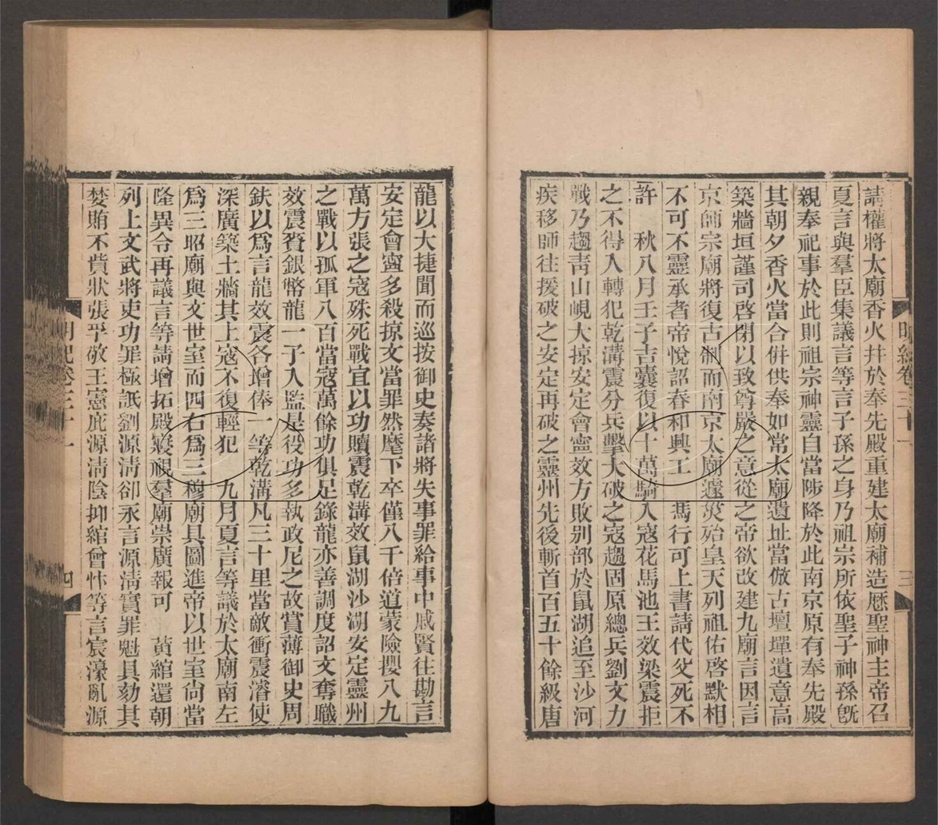 請權將太廟香火并於奉先殿重建太廟補造歷聖神主帝召
夏言與羣臣集議言等言子孫之身乃祖宗所依聖子神孫旣
親奉祀事於此則祖宗神靈自當陟降於此南京原有奉先殿
其朝夕香火當合倂供奉如常太廟遺址當倣古壇墠遺意高
築牆垣謹司啓閉以致尊嚴之意從之帝欲改建九廟言因言
京師宗廟將復古制而南京太廟遽災殆皇天列祖佑啓默相
不可不靈承者帝悅詔春和興工　馮行可上書請代父死不
許　秋八月壬子吉囊復以十萬騎入寇花馬池王效梁震拒
之不得入轉犯乾溝震分兵擊大破之寇趨固原總兵劉文力
戰乃趨靑山峴大掠安定會寧效方敗别部於鼠湖追至沙河
疾移師往援破之安定再破之靈州先後斬首百五十餘級唐
明紀卷三十一
三
龍以大捷聞而巡按御史奏諸將失事罪給事中戚賢往勘言
安定會寧多殺掠文當罪然麾下卒僅八千倍道蒙險攖八九
萬方張之寇殊死戰宜以功贖震乾溝效鼠湖沙湖安定靈州
之戰以孤軍八百當寇萬餘功俱足錄龍亦善調度詔文奪職
效震賚銀幣龍一子入監是役功多執政尼之故賞薄御史周
鈇以爲言龍效震各增俸一等乾溝凡三十里當敵衝震濬使
深廣築土牆其上寇不復輕犯　九月夏言等議於太廟南左
爲三昭廟與文世室而四右爲三穆廟具圖進帝以世室尙當
隆異令再議言等請增拓殿寢視羣廟崇廣報可　黃綰還朝
列上文武將吏功罪極詆劉源淸卻永言源淸實罪魁具劾其
婪賄不貲狀張孚敬王憲庇源淸陰抑綰會忭等言宸濠亂源
明紀卷三十一
四